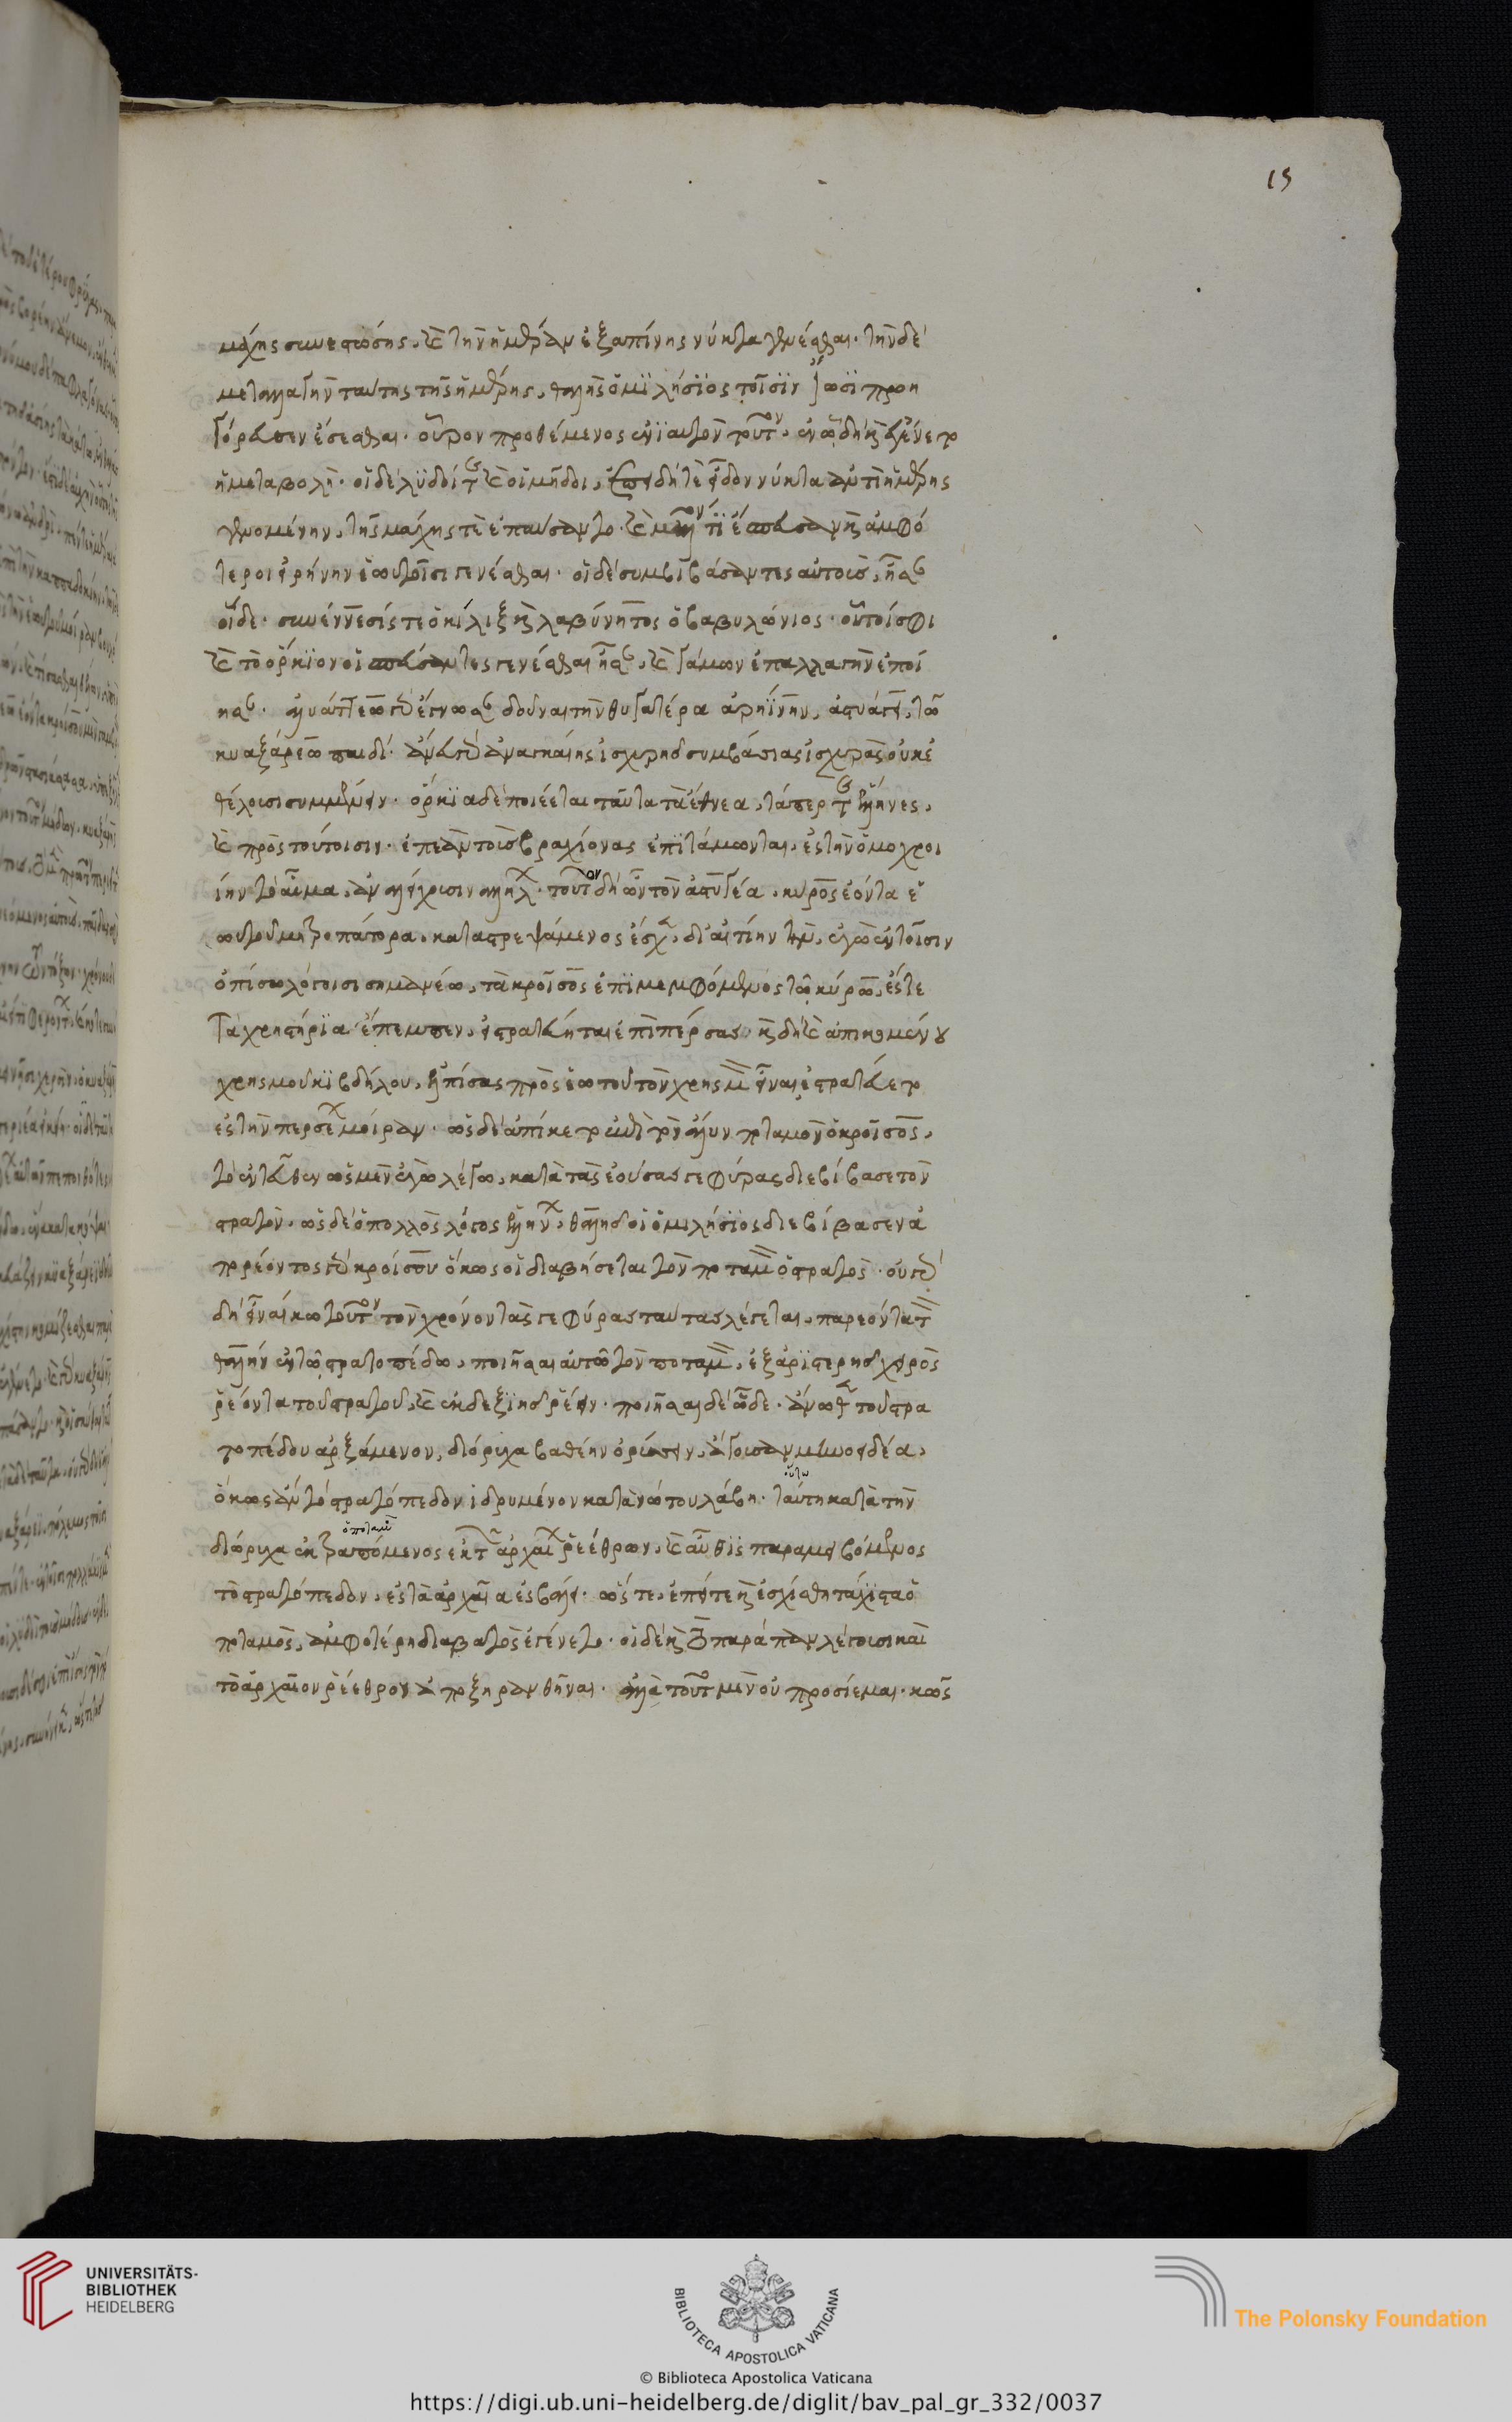 15
μάχης συνεστώσης, καὶ τὴν ἡμέρην ἐξαπίνης νύκτα γενέσθαι. τὴν δὲ
μεταλλαγὴν ταύτης τῆς ἡμέρης, θαλῆς ὁ μιλήσιος τοῖσιν ἴωσι προη
γόρευσεν ἔσεσθαι. οὖρον προθέμενος ἐνιαυτὸν τοῦτον. ἐν ᾧ δὴ καὶ ἐγένετο
ἡ μεταβολή. οἱ δὲ λυδοί τε καὶ οἱ μῆδοι, ἐπεὶ δή τε εἶδον νύκτα ἀντὶ ἡμέρης
γενομένην, τῆς μάχης τε ἐπαύσαντο. καὶ μᾶλλόν τι ἔσπευσαν καὶ ἀμφό
τεροι εἰρήνην ἑωυτοῖσι γενέσθαι. οἱ δὲ συμβιβάσαντες αὐτοὺς, ἦσαν
οἵδε. συέννεσίς τε ὁ κίλιξ καὶ λαβύνητος ὁ βαβυλώνιος. οὗτοί σφι
καὶ τὸ ὅρκιον οἱ σπεύσαντες γενέσθαι ἦσαν. καὶ γάμων ἐπαλλαγὴν ἐποί
ησαν. ἀλυάττεω γὰρ ἔγνωσαν δοῦναι τὴν θυγατέρα ἀρηίνην, ἀστυάγει, τῷ
κυαξάρεω παιδί. ἄνευ γὰρ ἀναγκαίης ἰσχυρῆς συμβάσιας ἰσχυρὰς οὐκ ἐ
θέλουσι συμμένειν. ὅρκια δὲ ποιέεται ταῦτα τὰ ἔθνεα, τάπερ τε ἕλληνες,
καὶ πρὸς τούτοισιν. ἐπεὰν τοὺς βραχίονας ἐπιτάμωνται, ἐς τὴν ὁμοχροι
ίην τὸ αἷμα, ἀναλείχουσιν ἀλλήλων. τοῦτον δὴ ὦν τὸν ἀστυάγεα, κῦρος ἐόντα ἑ
ωυτοῦ μητροπάτορα, καταστρεψάμενος ἔσχε, δι' αἰτίην τὴν, ἐγὼ ἐν τοῖσιν
ὀπίσω λόγοισι σημανέω, τὰ κροῖσος ἐπιμεμφόμενος τῷ κύρῳ, ἔς τε
τὰ χρηστήρια ἔπεμπεν, εἰ στρατεύηται ἐπὶ πέρσας. καὶ δὴ καὶ ἀπικομένου
χρησμοῦ κιβδήλου, ἐλπίσας πρὸς ἑωυτοῦ τὸν χρησμὸν εἶναι, ἐστρατεύετο
ἐς τὴν περσέων μοῖραν. ὡς δὲ ἀπίκετο ἐπὶ τὸν ἅλυν ποταμὸν ὁ κροῖσος,
τὸ ἐνταῦθεν ὡς μὲν ἐγὼ λέγω, κατὰ τὰς ἐούσας γεφύρας διεβίβασε τὸν
στρατόν. ὡς δὲ ὁ πολλὸς λόγος ἑλλήνων, θαλῆς οἱ ὁ μιλήσιος διεβίβασεν. ἀ
πορέοντος γὰρ κροίσου ὅκως οἱ διαβήσεται τὸν ποταμὸν ὁ στρατὸς. οὐ γὰρ
δὴ εἶναί κω τοῦτον τὸν χρόνον τὰς γεφύρας ταύτας λέγεται, παρεόντα τὸν
θαλῆν ἐν τῷ στρατοπέδῳ, ποιῆσαι αὐτῷ τὸν ποταμὸν, ἐξ ἀριστερῆς χειρὸς
ῥέοντα τοῦ στρατοῦ, καὶ ἐκ δεξιῆς ῥέειν. ποιῆσαι δὲ ὧδε. ἄνωθεν τοῦ στρα
τοπέδου ἀρξάμενον, διόρυχα βαθέην ὀρύσσειν, ἄγουσαν μηνοειδέα,
ὅκως ἂν τὸ στρατόπεδον ἱδρυμένον κατὰ νώτου λάβη. ταύτη οὕτω κατὰ τὴν
διόρυχα ἐκτραπόμενος ὁ ποταμὸς ἐκ τῶν ἀρχαίων ῥεέθρων, καὶ αὖθις παραμειβόμενος
τὸ στρατόπεδον, ἐς τὰ ἀρχαῖα ἐσβάλη. ὥστε, ἐπείτε καὶ ἐσχίσθη τάχιστα ὁ
ποταμὸς, ἀμφοτέρη διαβατὸς ἐγένετο. οἱ δὲ καὶ τὸ παράπαν λέγουσι καὶ
τὸ ἀρχαῖον ῥέεθρον ἀποξηρανθῆναι. ἀλλὰ τοῦτο μὲν οὐ προσίεμαι. κῶς
UNIVERSITÄTS-
BIBLIOTHEK
HEIDELBERG
BIBLIOTECA APOSTOLICA VATICANA
The Polonsky Foundation
© Biblioteca Apostolica Vaticana
https://digi.ub.uni-heidelberg.de/diglit/bav_pal_gr_332/0037